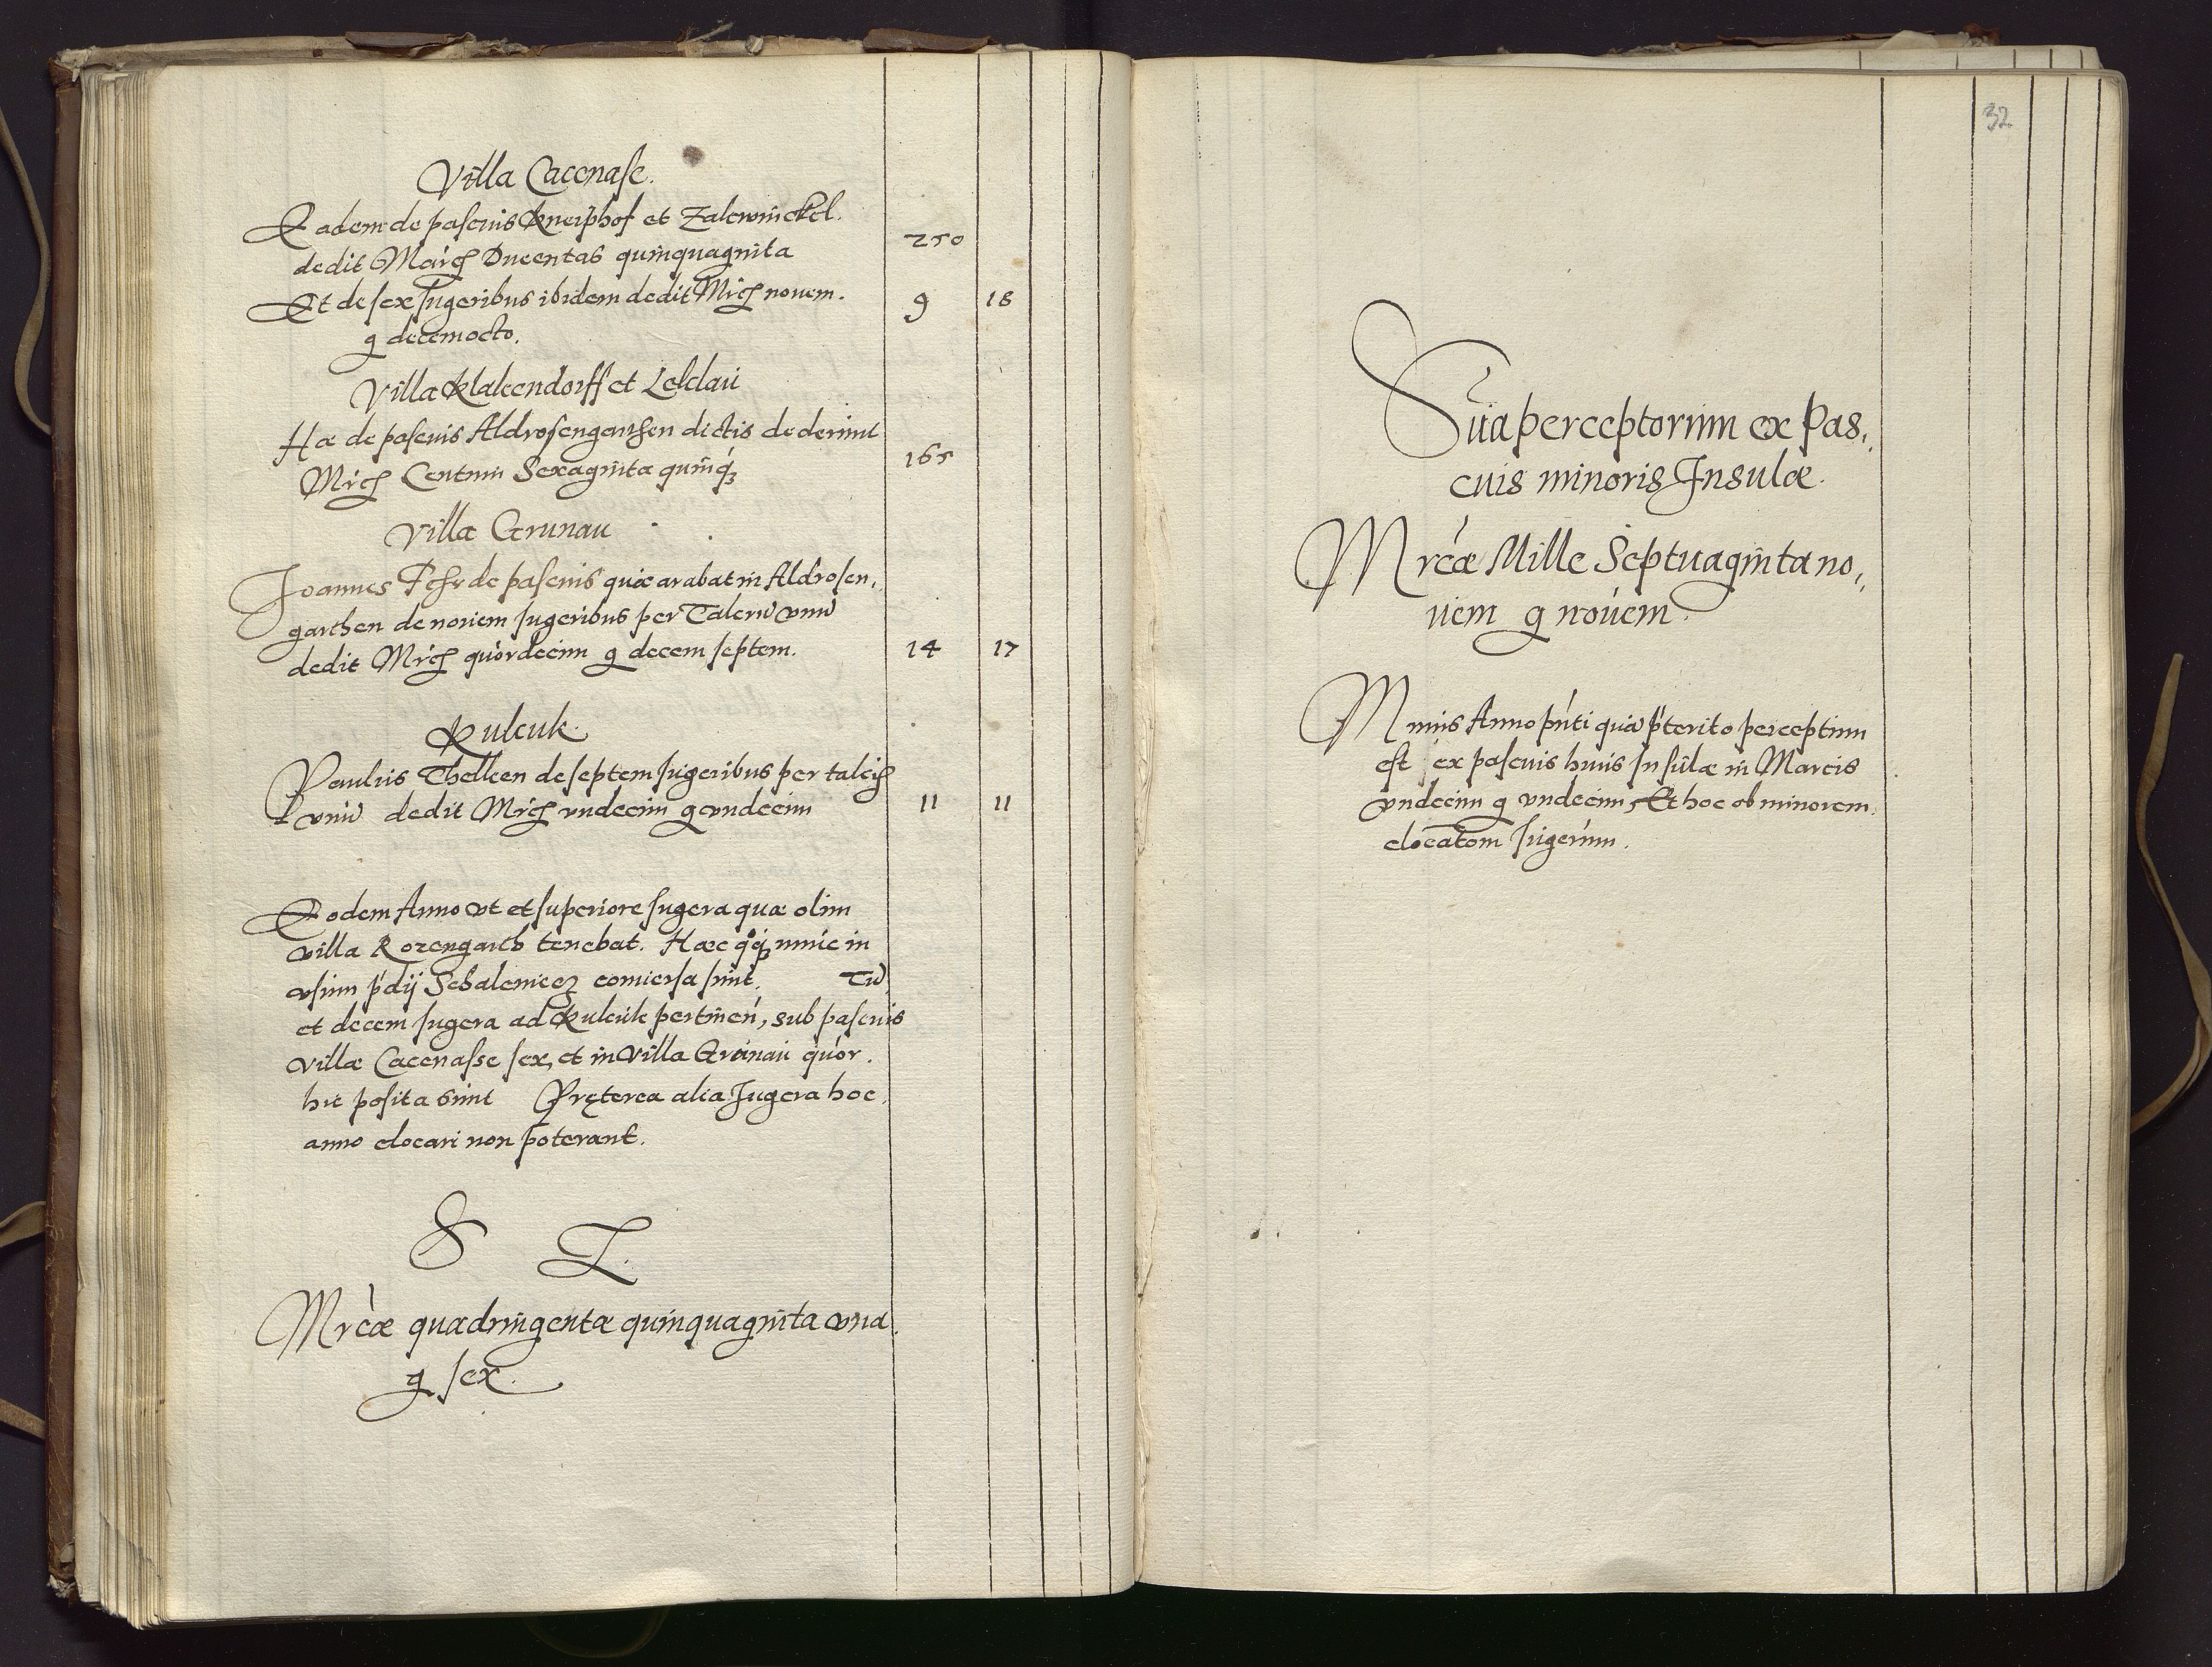 Villa Cacenase.
Eadem de pascuis Kneiphof et Zalewinckel.
dedit March Ducentas quinquaginta 250
Et de sex Jugeribus ibidem dedit Mrch nouem. 9 18
g decem octo.
Villa Klakendorff et Leklau
Hæ de pascuis Aldrosengarthen dictis dederunt
Mrch Centum Sexaginta quinq3 165
Villa Grunau
Joannes de pascuis quæ arabat in Aldrosen,
garthen de nouem Jugeribus per Talerū vnū
dedit Mrch quordecim g decem septem. 14 17
Kulcuk
Paulus Thelken de septem Jugeribus per
vnū dedit Mrch vndecim g vndecim 11 11
Eodem Anno vt et superiore Jugera quæ olim
villa Rozengarth tenebat. Hæc qoq3 nunc in
vsum pdij conuersa sunt. Tū
et decem Jugera ad Kulcuk pertinen, sub pascuis
villæ Cacenasse sex, et in Villa Grunau quor.
hic posita sunt Pręterea alia Jugera hoc
anno elocari non poterant.
S L.
Mrcæ quadringentæ quinquaginta vna.
g sex.
32
Suā perceptorum ex Pas,
cuis minoris Insulæ.
Mrcæ Mille Septuaginta no,
uem g nouem.
Minus Anno pnti quā pterito perceptum
est ex pascuis huius Insulæ in Marcis
vndecim g vndecim, Et hoc ob minorem
elocatom Jugerum.